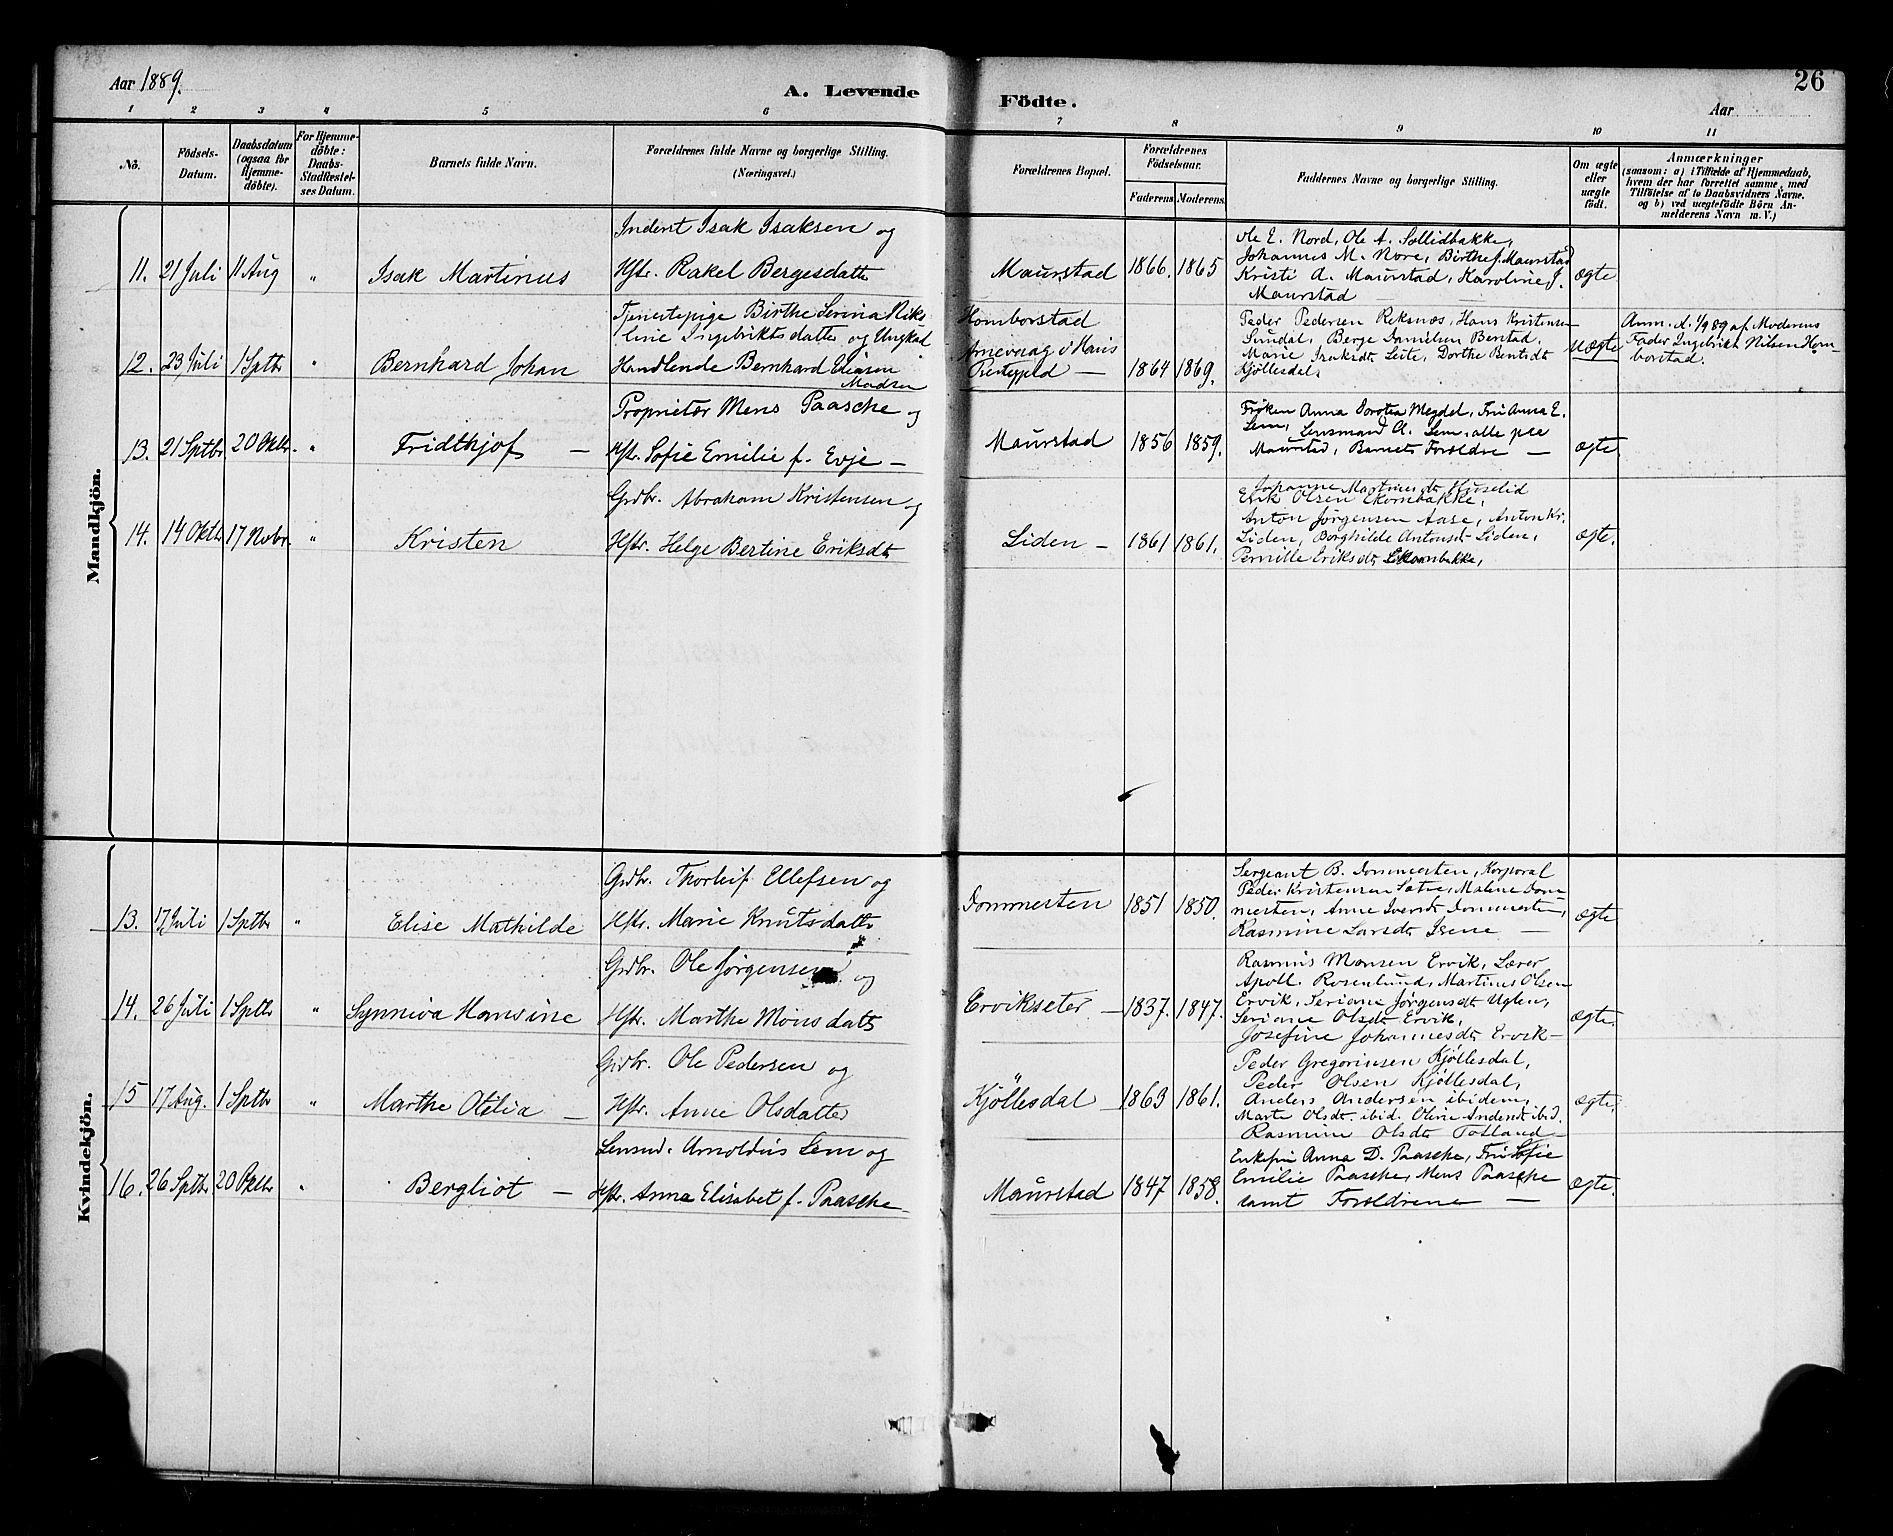 Aar 1889.
A. Levende
Födte.
Aar
26
1 2 3 4 5 6 7 8 9 10 11
No.
Födsels-
Datum.
Daabsdatum
(ogsaa for
Hjemme-
döbte).
For Hjemme-
döbte:
Daabs-
Stadfæstel-
ses Datum.
Barnets fulde Navn.
Forældrenes fulde Navne og borgerlige Stilling.
(Næringsvei.)
Forældrenes Bopæl.
Forældrenes
Födselsaar.
Faderens.
Moderens.
Faddernes Navne og borgerlige Stilling.
Om ægte
eller
uægte
födt.
Anmærkninger
(saasom: a) i Tilfælde af Hjemmedaab,
hvem der har forrettet samme, med
Tilföielse af to Daabsvidners Navne.
og b) ved uægtefödte Börn An-
melderens Navn m. V.)
Mandkjön.
11. 21 Juli 11 Aug " Isak Martinus
Inderst Isak Isaksen og
Hstr. Rakel Bergesdattr
Maurstad 1866. 1865
Ole E. Nord, Ole A. Sollidbakke,
Johannes M. Nore, Birthe J. Maurstad
Kristi A. Maurstad, Karoline J.
Maurstad
ægte
12. 23 Juli 1 Sptbr " Bernhard Johan
Tjenestepige Birthe Serina Niko
line Ingebriktsdatter og Ungkad
Handlende Bernhard Eliasen
Madsen
Homborstad
Arnevaag i Havis
Prestegjeld — 1864 1869.
Peder Pedersen Reksnæs, Hans Kristensen
Sundal, Berge Danielsen Berstad,
Marie Isaksdt Leite, Dorthe Berntsdt
Kjöllesdal,
uægte
Anm. d. 1/9 89 af Moderens
Fader Ingebrikt Nilsen Hom-
borstad.
13. 21 Sptbr 20 Oktbr. " Fridthjof —
Proprietær Mens Paasche og
Hstr. Sofie Emilie f. Evje —
Maurstad 1856 1859.
Fröken Anna Dorotea Megdel, Fru Anna E.
Sem, Lensmand A. Sem, alle paa
Maurstad, Barnets Foreldre —
ægte.
14. 14 Oktbr 17 Novbr. " Kristen
Grdbr. Abraham Kristensen og
Hstr. Helge Bertine Eriksdtr
Liden — 1861 1861.
Johanne Martinusdt Huselid
Erik Olsen Ekornbakke,
Anton Jørgensen Aase, Anton Kr.
Liden, Borghilde Antonsdt Liden,
Pernille Eriksdt Ekornbakke,
ægte.
Kvindekjön.
13. 17 Juli 1 Sptbr " Elise Mathilde
Grdbr. Thorleif Ellefsen og
Hstr. Marie Knutsdattr
Dommesten 1851 1850.
Sergeant B. Dommesten, Korporal
Peder Kristensen Sætre, Malene Dom
mesten, Anne Iversdt Dommesten,
Rasmine Larsdt Isene —
ægte
14. 26 Juli 1 Sptbr " Synneva Hansine
Grdbr. Ole Jørgensen og
Hstr. Marthe Monsdattr
Ervikseter — 1837. 1847.
Rasmus Monsen Ervik, Lærer
Apoll. Rosenlund, Martinus Olsen
Ervik, Seriane Jørgensdt Uglen,
Seriane Olsdt Ervik,
Josefine Johannesdt Ervik —
ægte.
15 17 Aug. 1 Sptbr " Marthe Otelia —
Grdbr. Ole Pedersen og
Hstr. Anne Olsdatter
Kjöllesdal — 1863 1861.
Peder Gregoriusen Kjöllesdal,
Peder Olsen Kjöllesdal,
Anders Andersen ibidem,
Marte Olsdt ibid. Oline Andersdt ibid.
Rasmine Olsdt Totland —
ægte.
16. 26 Sptbr 20 Oktbr " Bergliot —
Lensmd. Arnoldus Sem og
Hstr. Anna Elisabet f. Paasche
Maurstad 1847 1858.
Enkefru Anna D. Paasche, Fru Sofie
Emilie Paasche, Mens Paasche
samt Forældrene —
ægte.